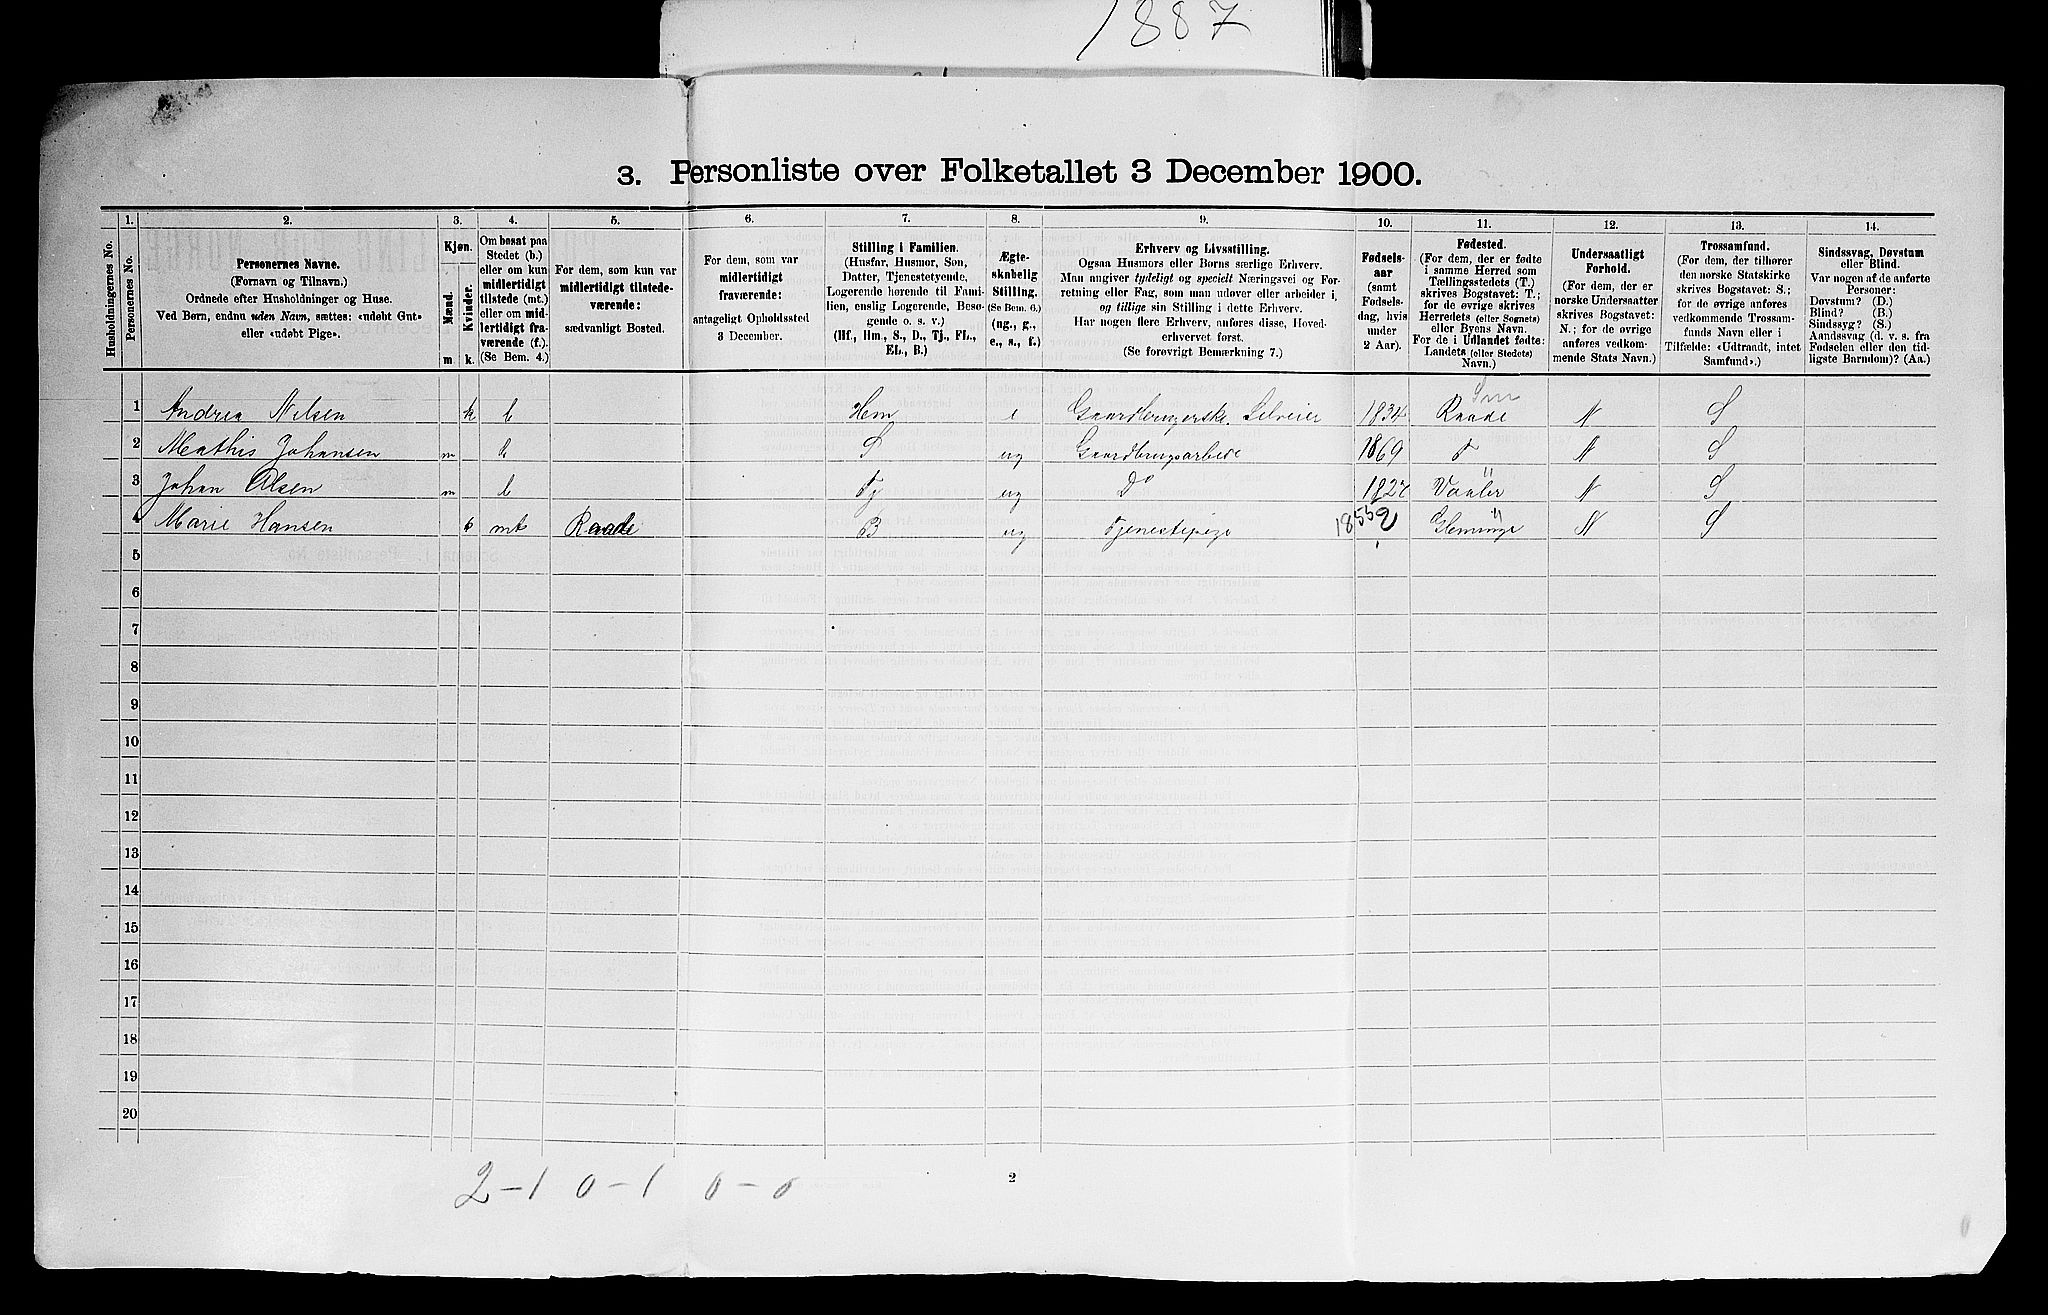 1887
3. Personliste over Folketallet 3 December 1900.
Husholdningernes No.
1.
Personernes No.
2.
Personernes Navne.
(Fornavn og Tilnavn.)
Ordnede efter Husholdninger og Huse.
Ved Børn, endnu uden Navn, sættes: «udøbt Gut»
eller «udøbt Pige».
3.
Kjøn.
Mænd.
Kvinder.
m k.
4.
Om bosat paa
Stedet (b.)
eller om kun
midlertidigt
tilstede (mt.)
eller om mid-
lertidigt fra-
værende (f.).
(Se Bem. 4.)
5.
For dem, som kun var
midlertidigt tilstede-
værende:
sædvanligt Bosted.
6.
For dem, som var
midlertidigt
fraværende:
antageligt Opholdssted
3 December.
7.
Stilling i Familien.
(Husfar, Husmor, Søn,
Datter, Tjenestetyende,
Logerende hørende til Fami-
lien, enslig Logerende, Besø-
gende o. s. v.)
(Hf., Hm., S., D., Tj., FL.,
EL., B.)
8.
Ægte-
skabelig
Stilling.
(Se Bem. 6.)
(ug., g.,
e., s., f.)
9.
Erhverv og Livsstilling.
Ogsaa Husmors eller Børns særlige Erhverv.
Man angiver tydeligt og specielt Næringsvei og For-
retning eller Fag, som man udøver eller arbeider i,
og tillige sin Stilling i dette Erhverv.
Har nogen flere Erhverv, anføres disse, Hoved-
erhvervet først.
(Se forøvrigt Bemærkning 7.)
10.
Fødsels-
aar
(samt
Fødsels-
dag, hvis
under
2 Aar).
11.
Fødested.
(For dem, der er fødte
i samme Herred som
Tællingsstedets (T.)
skrives Bogstavet: T.;
for de øvrige skrives
Herredets (eller Sognets)
eller Byens Navn.
For de i Udlandet fødte:
Landets (eller Stedets)
Navn.)
12.
Undersaatligt
Forhold.
(For dem, der er
norske Undersaatter
skrives Bogstavet:
N.; for de øvrige
anføres vedkom-
mende Stats Navn.)
13.
Trossamfund.
(For dem, der tilhører
den norske Statskirke
skrives Bogstavet: S.;
for de øvrige anføres
vedkommende Trossam-
funds Navn eller i
Tilfælde: «Udtraadt, intet
Samfund».)
14.
Sindssvag, Døvstum
eller Blind.
Var nogen af de anførte
Personer:
Døvstum? (D.)
Blind? (B.)
Sindssyg? (S.)
Aandssvag (d. v. s. fra
Fødselen eller den tid-
ligste Barndom)? (Aa.)
1 Andrea Nilsen k b Hm e Gaardbrugerske. Selveier 1834 Raade N S
2 Mathis Johansen m b S ug Gaardbrugsarbeide 1869 T N S
3 Johan Olsen m b Tj ug Do Vaaler N S
4 Marie Hansen k mt Raade B ug Tjenestepige Glemminge N S
5
6
7
8
9
10
11
12
13
14
15
16
17
18
19
20
2 – 1 0 – 1 0 – 0
2